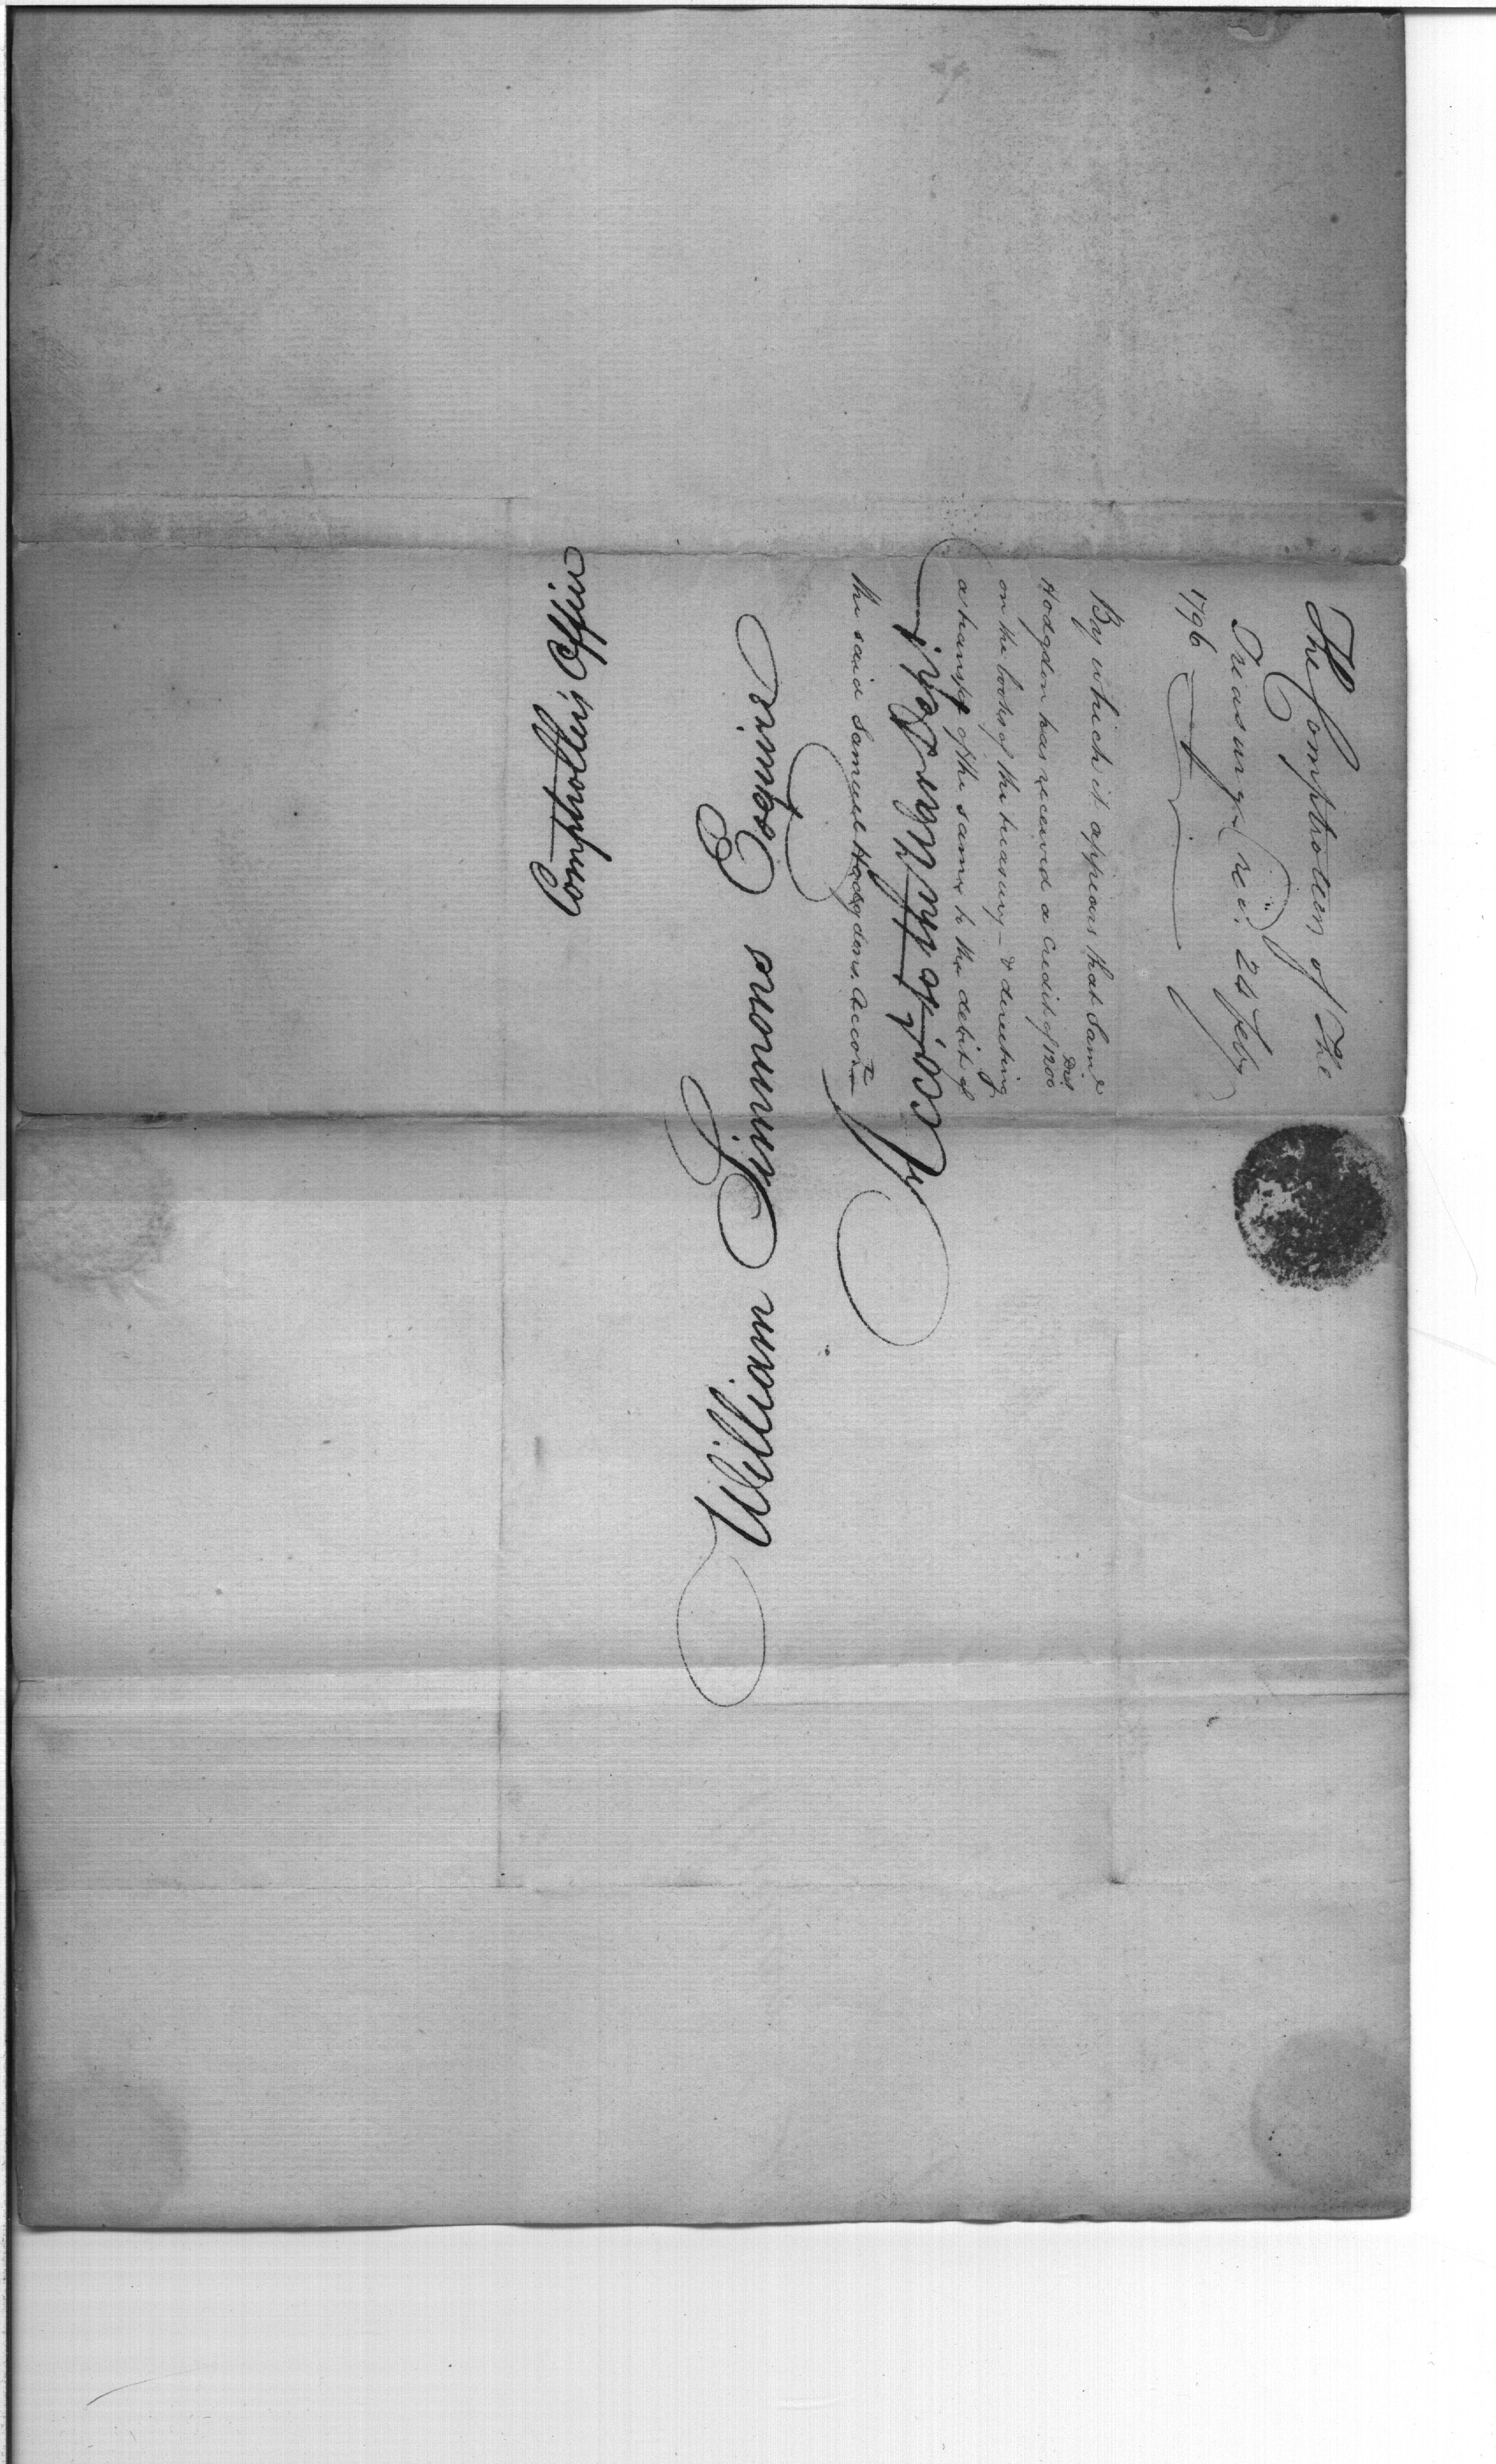 Comptroller's Office
William Simmons Esquire
Accot. of the War Dept.
The Comptroller of The
Treasury (recd. 24 Feby
1796
By which it appears that Saml
Hodgdon has received a Credit of 1200 Dols
on the books of the treasury – & directing
a transfr of the same to the debit of
the said Samuel Hodgdons Accot